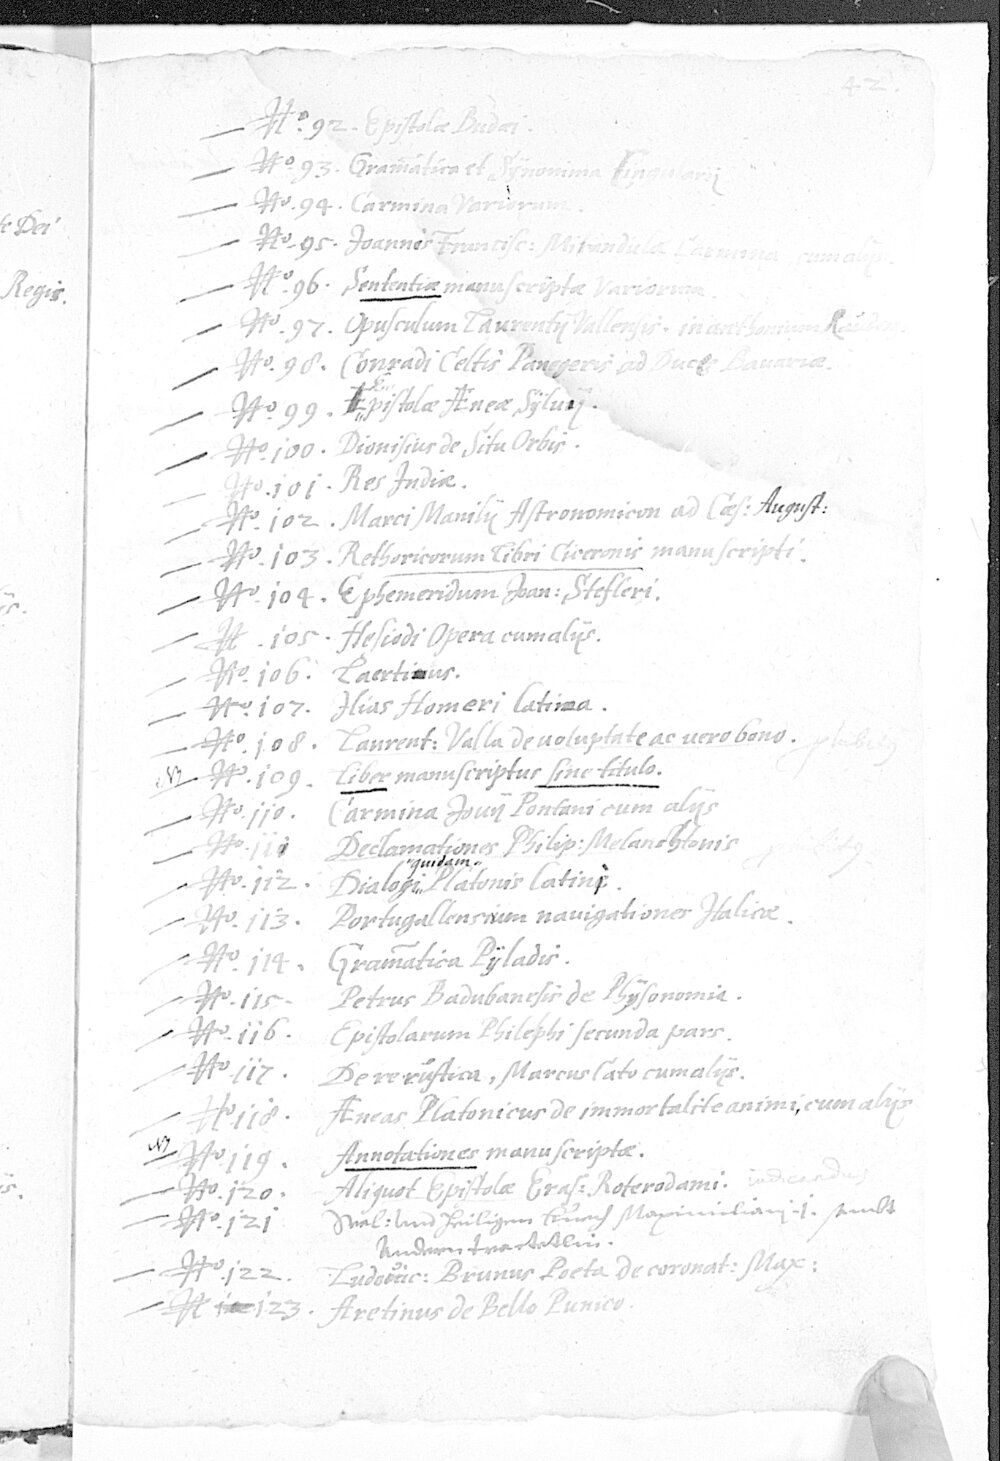 42.
te Dei
Regis.
No. 92. Epistolæ Budæi.
No. 93. Gram̄atica et Sÿnonima
No. 94. Carmina Variorum.
No. 95. Joannis Francisc: Mirandulæ Carmina cum alijs.
No. 96. Sententiæ manuscriptæ Variorum
No. 97. Opusculum Laurentij Vallensis. in anthonium
No. 98. Conradi Celtis Panegeris ad Duces Bavariæ.
No. 99. Epistolæ Æneæ Sÿluij.
No. 100. Dionisius de Situ Orbis.
No. 101. Res Indiæ.
No. 102. Marci Manilij Astronomicon ad Cæs: August:
No. 103. Rethoricorum Libri Ciceronis manuscripti.
No. 104. Ephemeridum Joan: Stefleri.
No. 105. Hesiodi Opera cum alijs.
No. 106. Laertius.
No. 107. Ilias Homeri latina.
No. 108. Laurent: Valla de voluptate ac vero bono.
No. 109. Liber manuscriptus sine titulo.
No. 110. Carmina Jouij Pontani cum alijs
No. 111 Declamationes Philip: Melanchtonis
quidam
No. 112. Dialogi Platonis latini.
No. 113. Portugallensium navigationes Italicæ.
No. 114. Gram̄atica Pÿladis.
No. 115. Petrus Badubanesis de Phÿsonomia.
No. 116. Epistolarum Philephi secunda pars.
No. 117. De re rustica, Marcus Cato cum alijs.
No. 118. Æneas Platonicus de immortalite animi, cum alijs
No. 119. Annotationes manuscriptæ.
No. 120. Aliquot Epistolæ Eras: Roterodami.
No. 121 und Heiligen Maximiliani .i. sambt
Andern tractetlin.
No. 122. Ludovic: Brunus Poeta de coronat: Max:
N 123. Aretinus de Bello Punico.